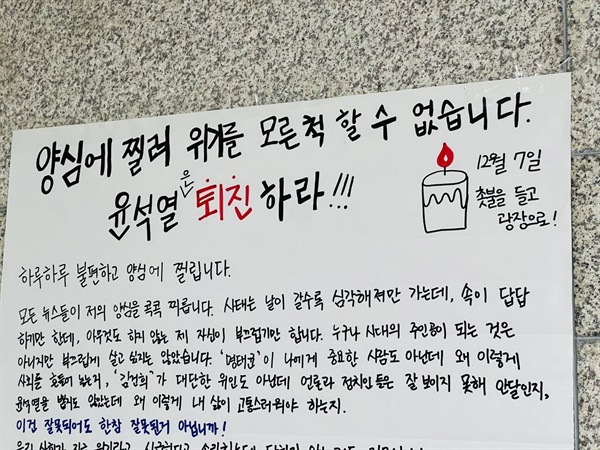 양심에 찔려 위기를 모른척 할 수 없습니다.
윤석열은 퇴진하라!!!
12월 7일
촛불을 들고
광장으로!
하루하루 불편하고 양심에 찔립니다.
모든 뉴스들이 저의 양심을 콕콕 찌릅니다. 사태는 날이 갈수록 심각해져만 가는데, 속이 답답
하기만 한데, 아무것도 하지 않는 제 자신이 부끄럽기만 합니다. 누구나 시대의 주인공이 되는 것은
아니지만 부끄럽게 살고 싶지는 않았습니다. '명태균'이 나에게 중요한 사람도 아닌데 왜 이렇게
사회를 흔들어 놓는지, '김건희'가 대단한 위인도 아닌데 언론과 정치인들은 잘 보이지 못해 안달인지,
윤석열을 뽑지도 않았는데 왜 이렇게 내 삶이 고통스러워야 하는지.
이건 잘못되어도 한참 잘못된거 아닙니까!